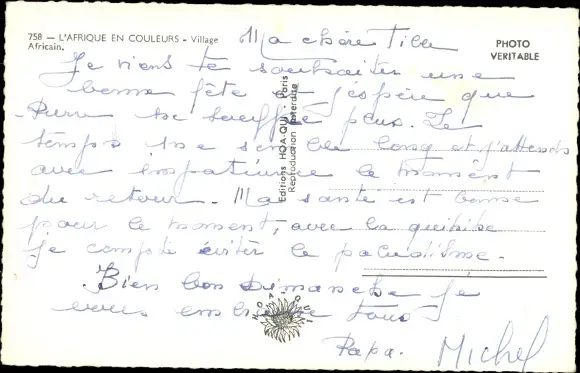 758 — L'AFRIQUE EN COULEURS - Village
Africain.
PHOTO
VERITABLE
Editions HOA-QUI - Paris
Reproduction interdite
HOA QUI
Ma chère
Je viens te souhaiter une
bonne fête et j'espère que
ne souffre plus. Le
temps me semble long et j'attends
avec impatience le moment
du retour - Ma santé est bonne
pour le moment, avec la
je compte éviter le paludisme -
Bien bon Dimanche Je
vous embrasse tous
Papa. Michel